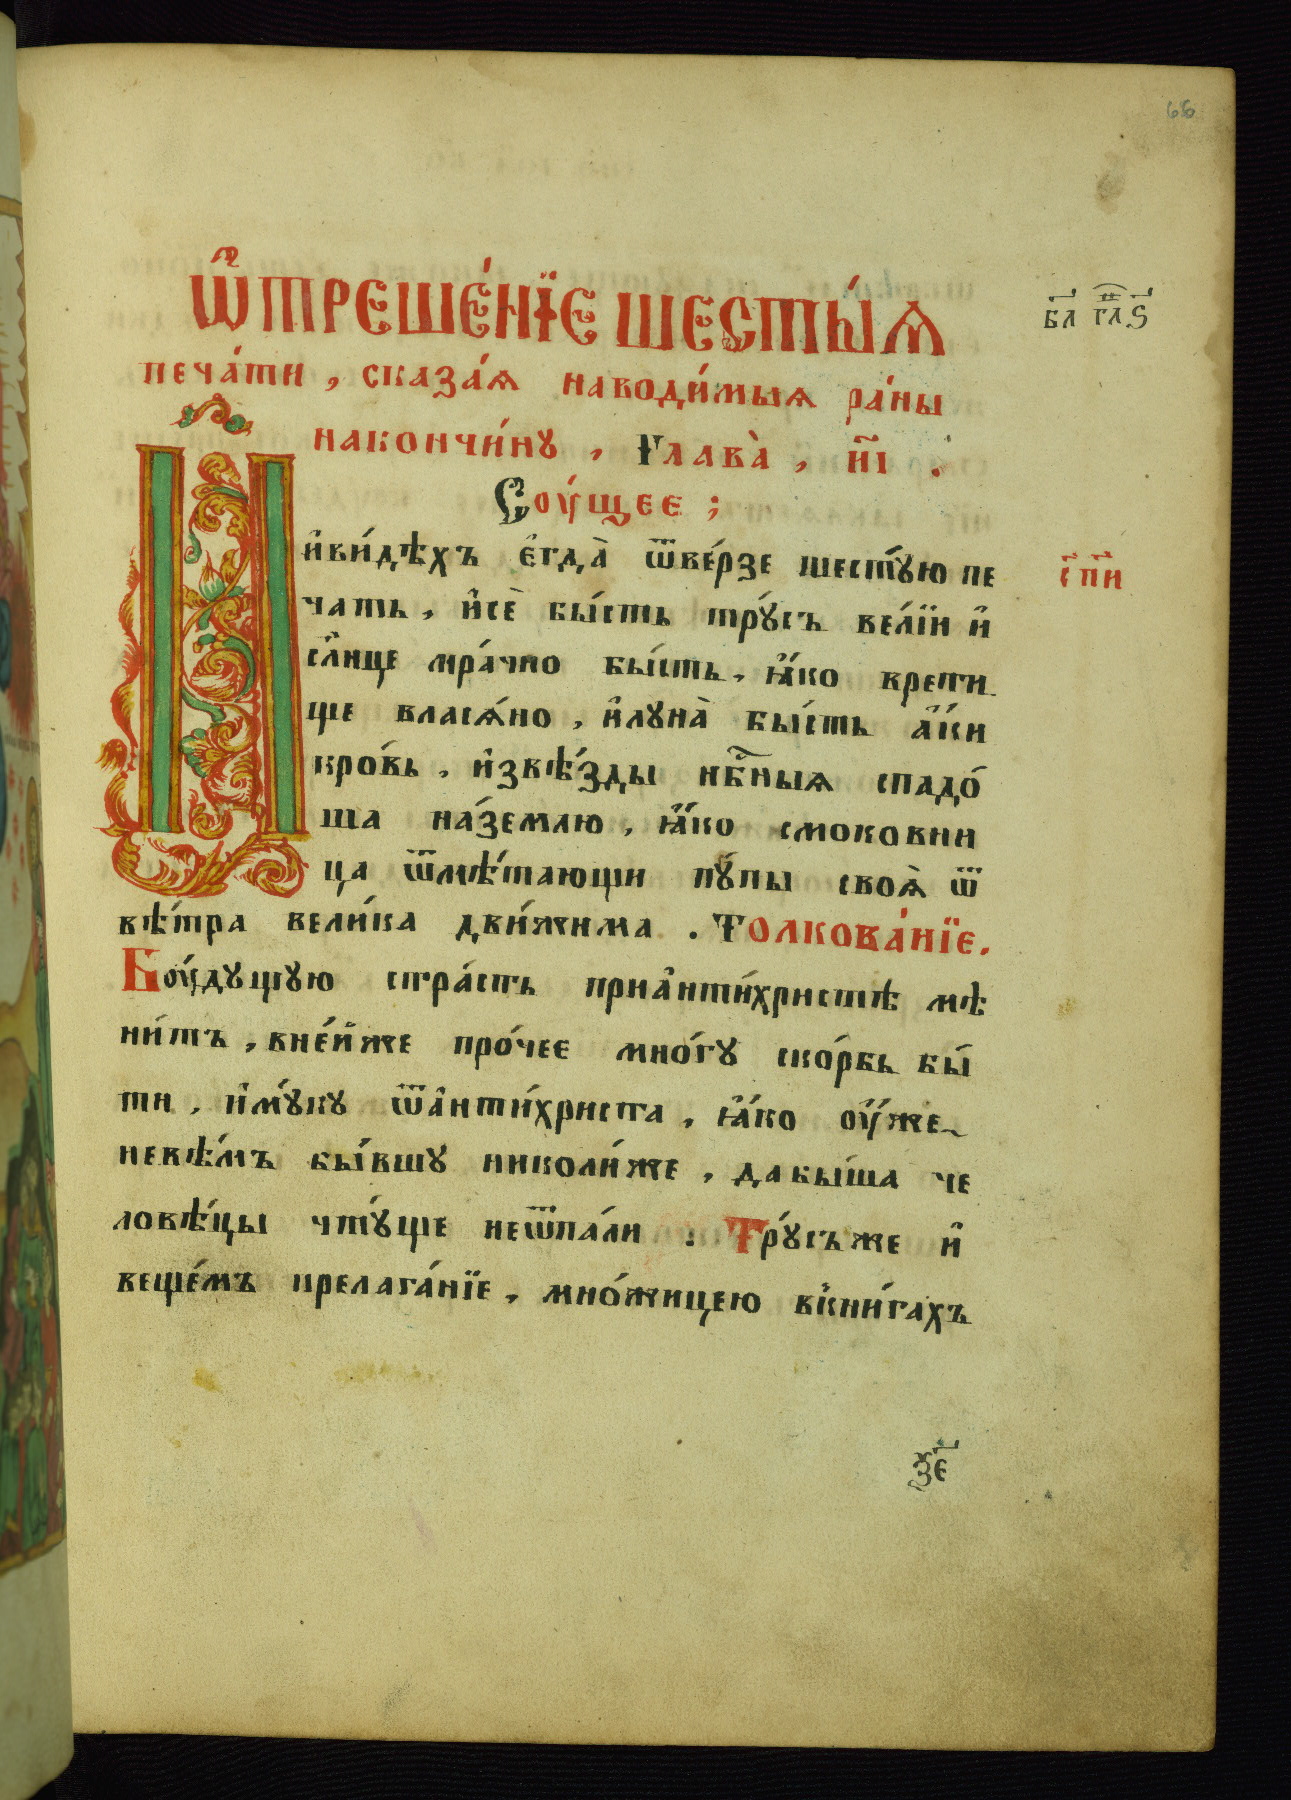 66
Ѿтреше́нїе шесты́ѧ
печа́ти, сказа́ѧ наводи́мыѧ ра́ны
накончи́нꙋ, Глава̀, и҃і.
Соу́щее;
И҆ви́дѣхъ є҆гда̀ ѿве́рзе шестꙋ́ю пе
чать, и҆сѐ бы́сть трꙋ́съ ве́лїи и҆
сл҃нце мра́чно бы́сть, ꙗ҆́ко врети
ще власѧ́но, и҆лꙋна̀ бы́сть а҆́ки
кро́вь, и҆звѣ́зды нб҃ныѧ спадо́
ша на́землю, ꙗ҆́ко смоковни
ца ѿмѣ́тающи пꙋ́пы своѧ̀ ѿ
вѣ́тра вели́ка дви́жима. Толкова́нїе.
Боу́дꙋщꙋю стра́сть приа҆нти́христѣ мѣ
ни́тъ, вне́йже про́чее мно́гꙋ ско́рбь бы́
ти, и҆мꙋ́кꙋ ѿа҆нти́христа, ꙗ҆́ко оу҆́же
невѣ́мъ бы́вшꙋ николи́же, дабы́ша че
ловѣ́цы чтꙋ́ще неѿпа́ли : Трꙋ́съже и҆
веще́мъ прелага́нїе, мно́жицею вкни́гахъ
бл҃ гл҃ ѕ҃
с҃ п҃и
ѯ҃е